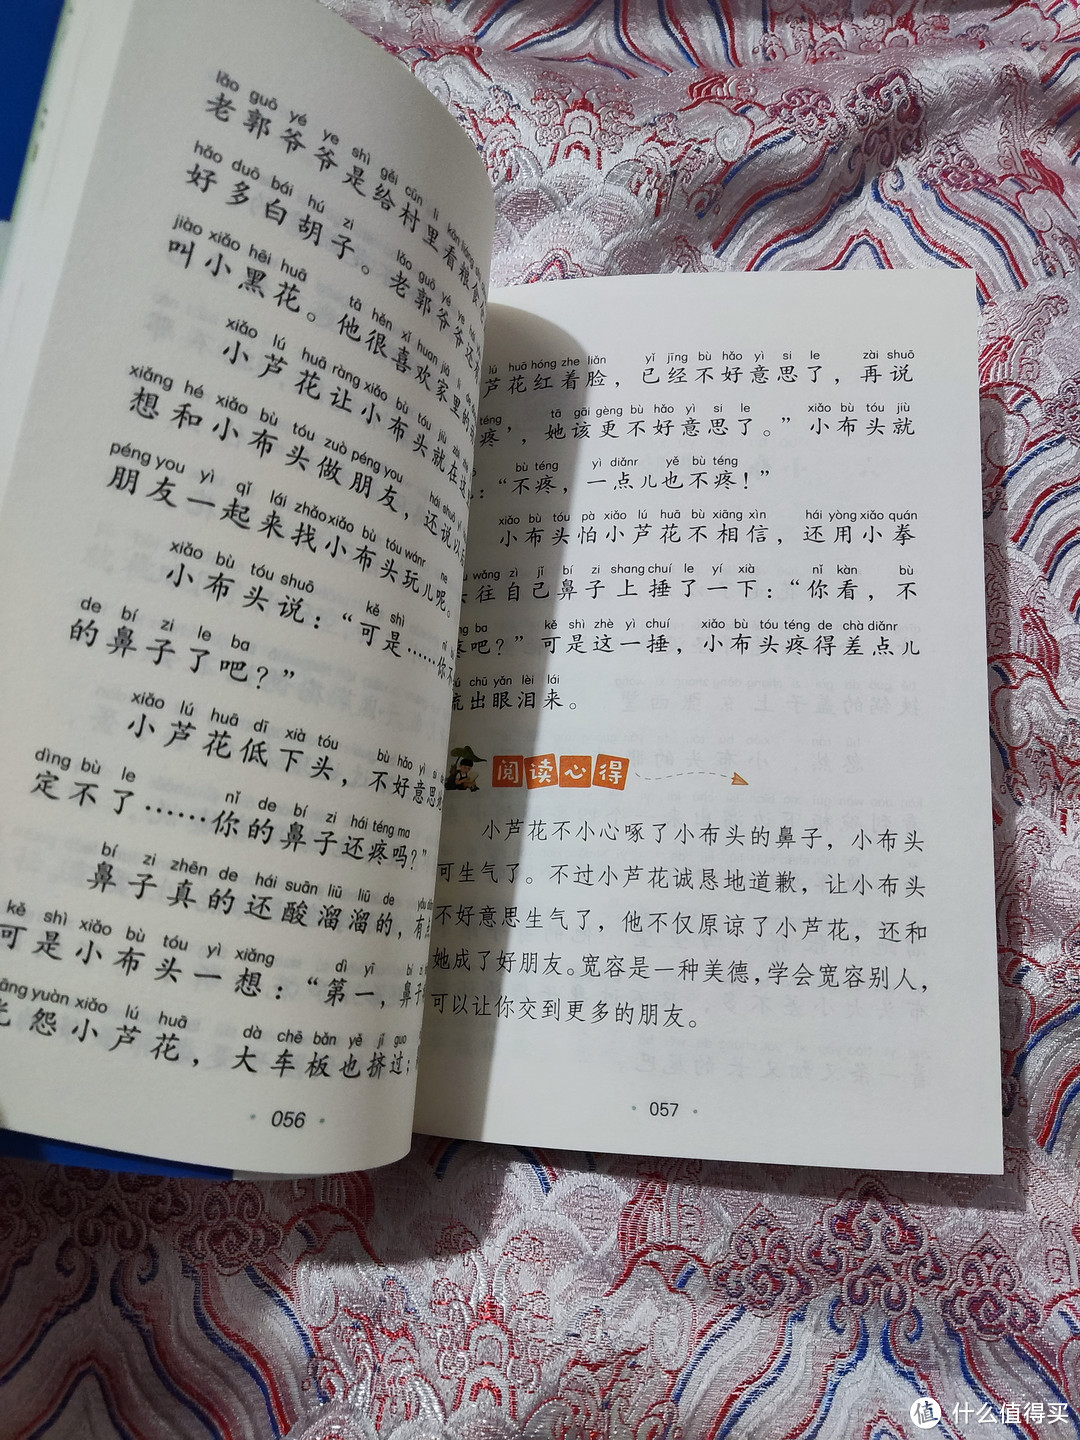 lǎo guō yé ye shì gěi cūn lǐ kān liáng shi
老郭爷爷是给村里看粮食
hǎo duō bái hú zi lǎo guō yé ye
好多白胡子。老郭爷爷还
jiào xiǎo hēi huā tā hěn xǐ huan jiā lǐ de
叫小黑花。他很喜欢家里的
xiǎo lú huā ràng xiǎo bù tóu jiù zài
小芦花让小布头就在这
xiǎng hé xiǎo bù tóu zuò péng you hái shuō yǐ
想和小布头做朋友，还说以
péng you yì qǐ lái zhǎo xiǎo bù tóu wánr ne
朋友一起来找小布头玩儿呢。
xiǎo bù tóu shuō kě shì nǐ
小布头说：“可是……你不
de bí zi le ba
的鼻子了吧？”
xiǎo lú huā dī xià tóu bù hǎo yì si
小芦花低下头，不好意思地
dìng bù le nǐ de bí zi hái téng ma
定不了……你的鼻子还疼吗？”
bí zi zhēn de hái suān liū liū de yǒu diǎn
鼻子真的还酸溜溜的，有点
kě shì xiǎo bù tóu yì xiǎng dì yī bí zi
可是小布头一想：“第一，鼻子
yuàn xiǎo lú huā dà chē bǎn yě jǐ guo
怨小芦花，大车板也挤过；
056
lú huā hóng zhe liǎn yǐ jīng bù hǎo yì si le zài shuō
芦花红着脸，已经不好意思了，再说
téng tā gāi gèng bù hǎo yì si le xiǎo bù tóu jiù
疼’，她该更不好意思了。”小布头就
bù téng yì diǎnr yě bù téng
：“不疼，一点儿也不疼！”
xiǎo bù tóu pà xiǎo lú huā bù xiāng xìn hái yòng xiǎo quán
小布头怕小芦花不相信，还用小拳
wǎng zì jǐ bí zi shang chuí le yí xià nǐ kàn bù
往自己鼻子上捶了一下：“你看，不
ba kě shì zhè yì chuí xiǎo bù tóu téng de chà diǎnr
疼吧？”可是这一捶，小布头疼得差点儿
chū yǎn lèi lái
流出眼泪来。
阅读心得
小芦花不小心啄了小布头的鼻子，小布头
可生气了。不过小芦花诚恳地道歉，让小布头
不好意思生气了，他不仅原谅了小芦花，还和
她成了好朋友。宽容是一种美德，学会宽容别人，
可以让你交到更多的朋友。
057
值 什么值得买